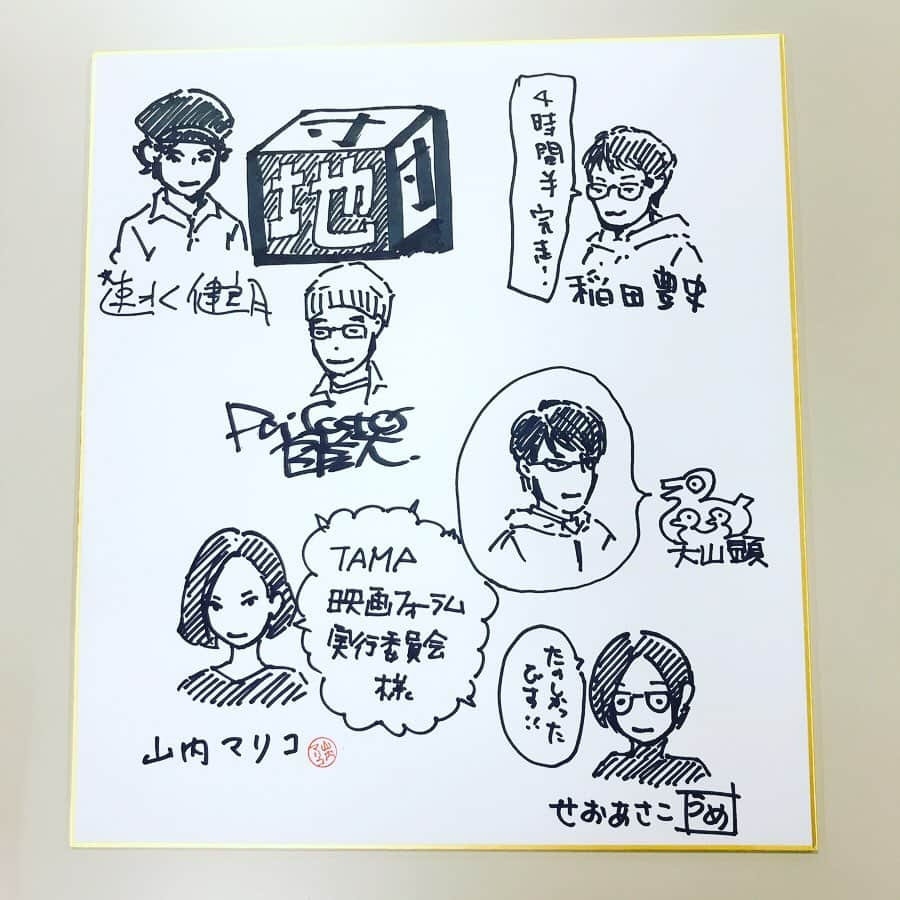 地
速水健朗
4時間半完走!
稲田豊史
大山顕
TAMA
映画フォーラム
実行委員会
様
山内マリコ
山内
マリコ
たのしかった
です!!
せおあさこ うめ